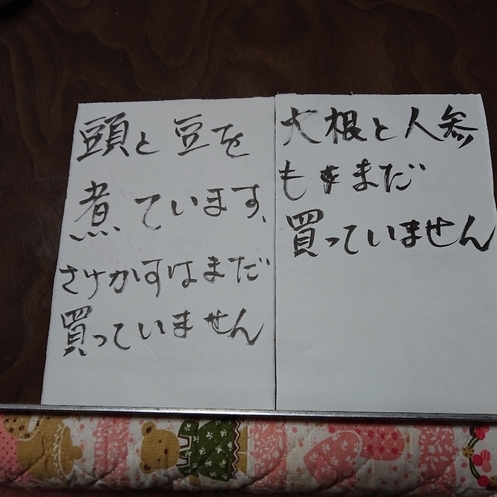 頭と豆を
煮ています、
さけかすはまだ
買っていません
大根と人参
もまだ
買っていません